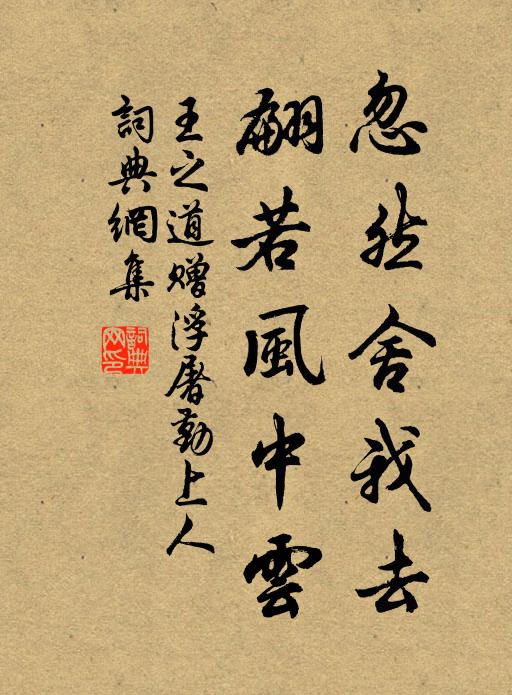 忽然舍我去
翩若風中雲
王之道贈浮屠勤上人
詞典網集
詞典網印